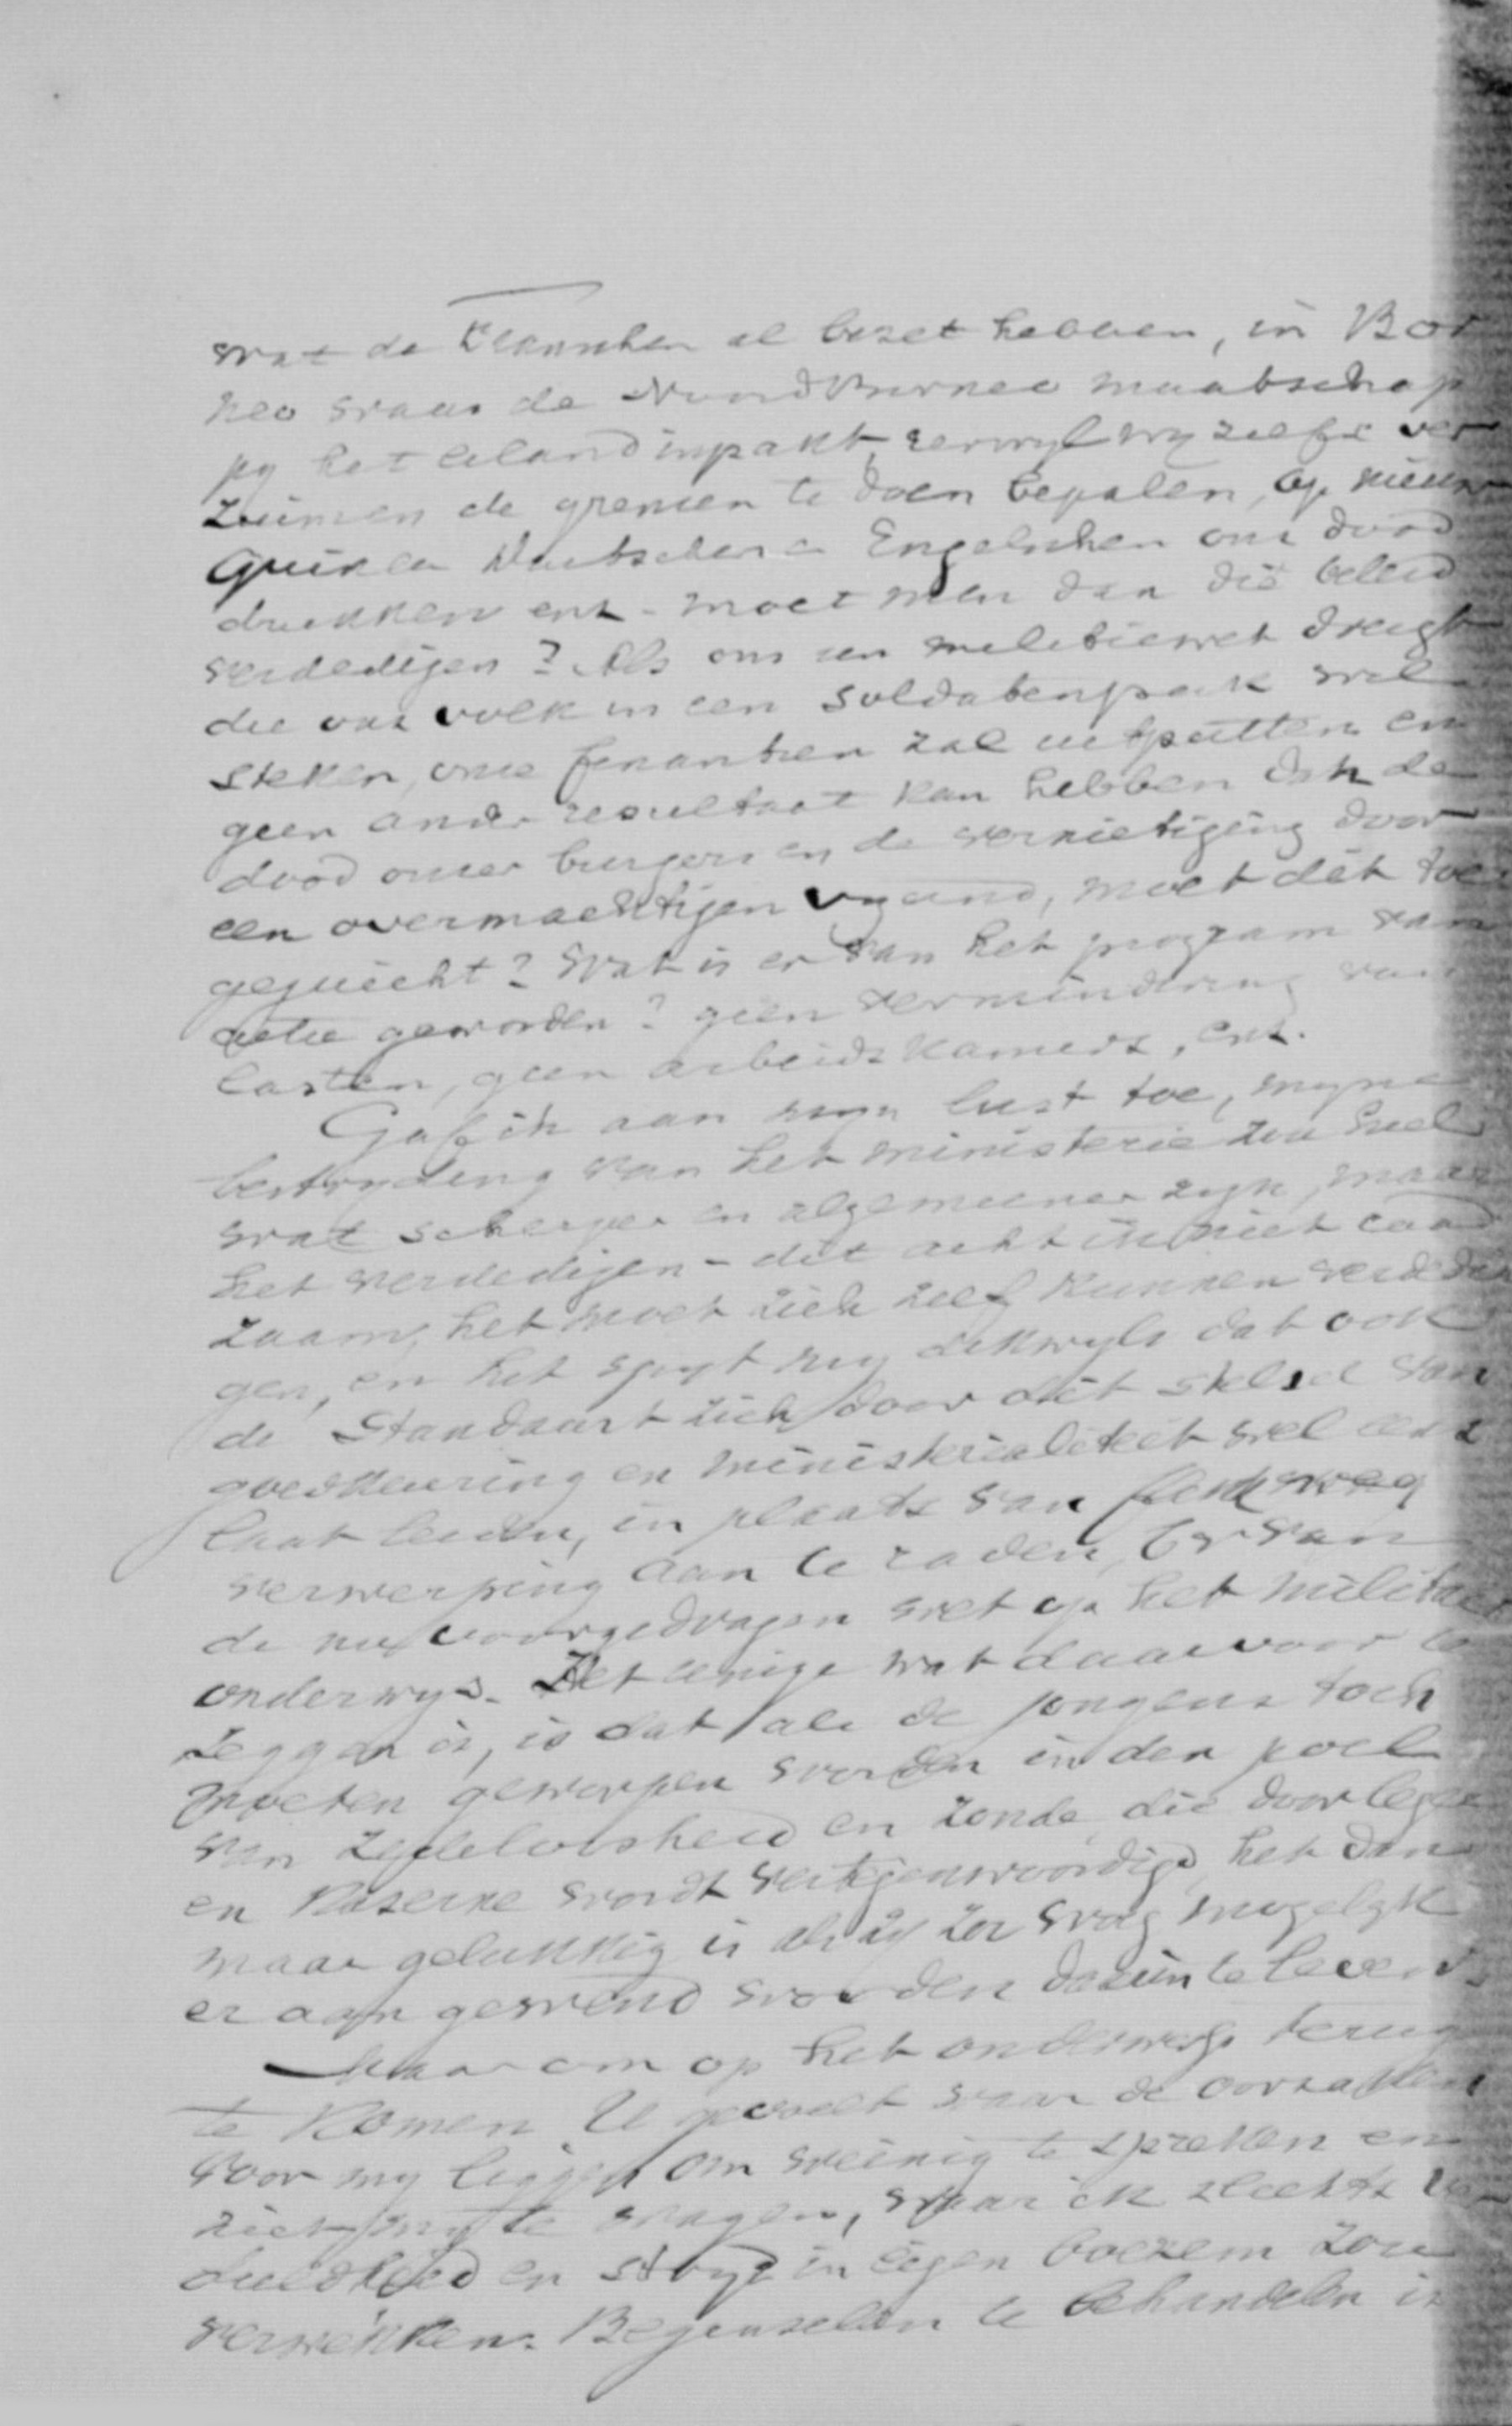 wat de Franschen al bezet hebben, in Bor
neo waar de Noord Borneo maatschap
py het eiland inpakt, terwyl wy zelfs ver
zuimen de grenzen te doen bepalen, op nieuw
Guinea Duitschers en Engelschen ons dood
drukken enz - moet men dan die beleid
verdedigen? Als ons een militiewet dreigt
die ons volk in een soldatenpak wil
steken, onze finantien zal uitputten en
geen ander resultaat kan hebben dan de
dood onzer burgers en de vernietiging door
een overmachtigen vyand, moet dit toe
gejuicht? Wat is er van het program van
actie geworden? geen vermindering van
lasten, geen arbeidskamers, enz.
Gaf ik aan myn lust toe, myne
bestryding van het ministerie zou heel
wat scherper en algemeener zyn, maar
het verdedigen - dit acht ik niet raad
zaam, het moet zich zelf kunnen verdedi
gen, en het spyt my dikwyls dat ook
de Standaart zich door dit stelsel van
goedkeuring en ministerialiteit wel eens
laat leiden, in plaats van flinkweg
verwerping aan te raden, bv van
de nu voorgedragen wet op het militair
onderwys. Het eenige wat daarvoor te
zeggen is, is dat als de jongens toch
moeten geworpen worden in den poel
van zedeloosheid en zonde, die door leger
en kazerne wordt vertegenwoordigd, het dan
maar gelukkig is als zy zoo vroeg mogelyk
er aan gewend worden daarin te leven.
Maar om op het onderwerp terug
te komen. U gevoelt waar de oorzaken
voor my liggen om weinig te spreken en
niet my te wagen, waar ik slechts
en stryd in eigen boezem zou
verwekken. Beginselen te behandelen is